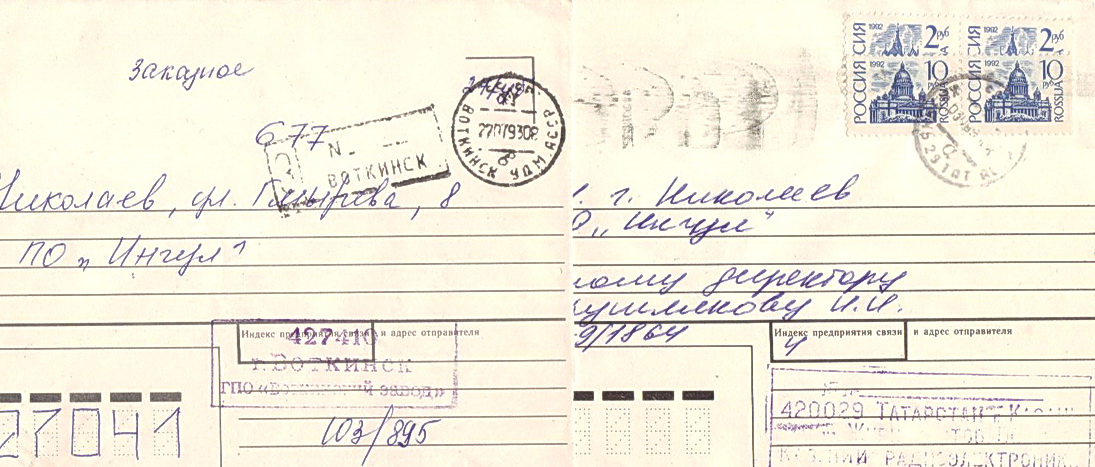 Заказное
677
N
ВОТКИНСК
ВОТКИНСК УДМ. АССР
Николаев, ул.
8
ПО „Ингул"
Индекс предприятия связи и адрес отправителя
427410
г. Воткинск
ГПО «Воткинский завод»
103/895
27041
РОССИЯ 1992 2 руб
1992 10 руб ROSSIJA
РОССИЯ 1992 2 руб
1992 10 руб ROSSIJA
г. Николаев
„Ингул"
директору
И.И.
9/1864
Индекс предприятия связи и адрес отправителя
420029 Татарстан г.
РАДИОЭЛЕКТРОНИК